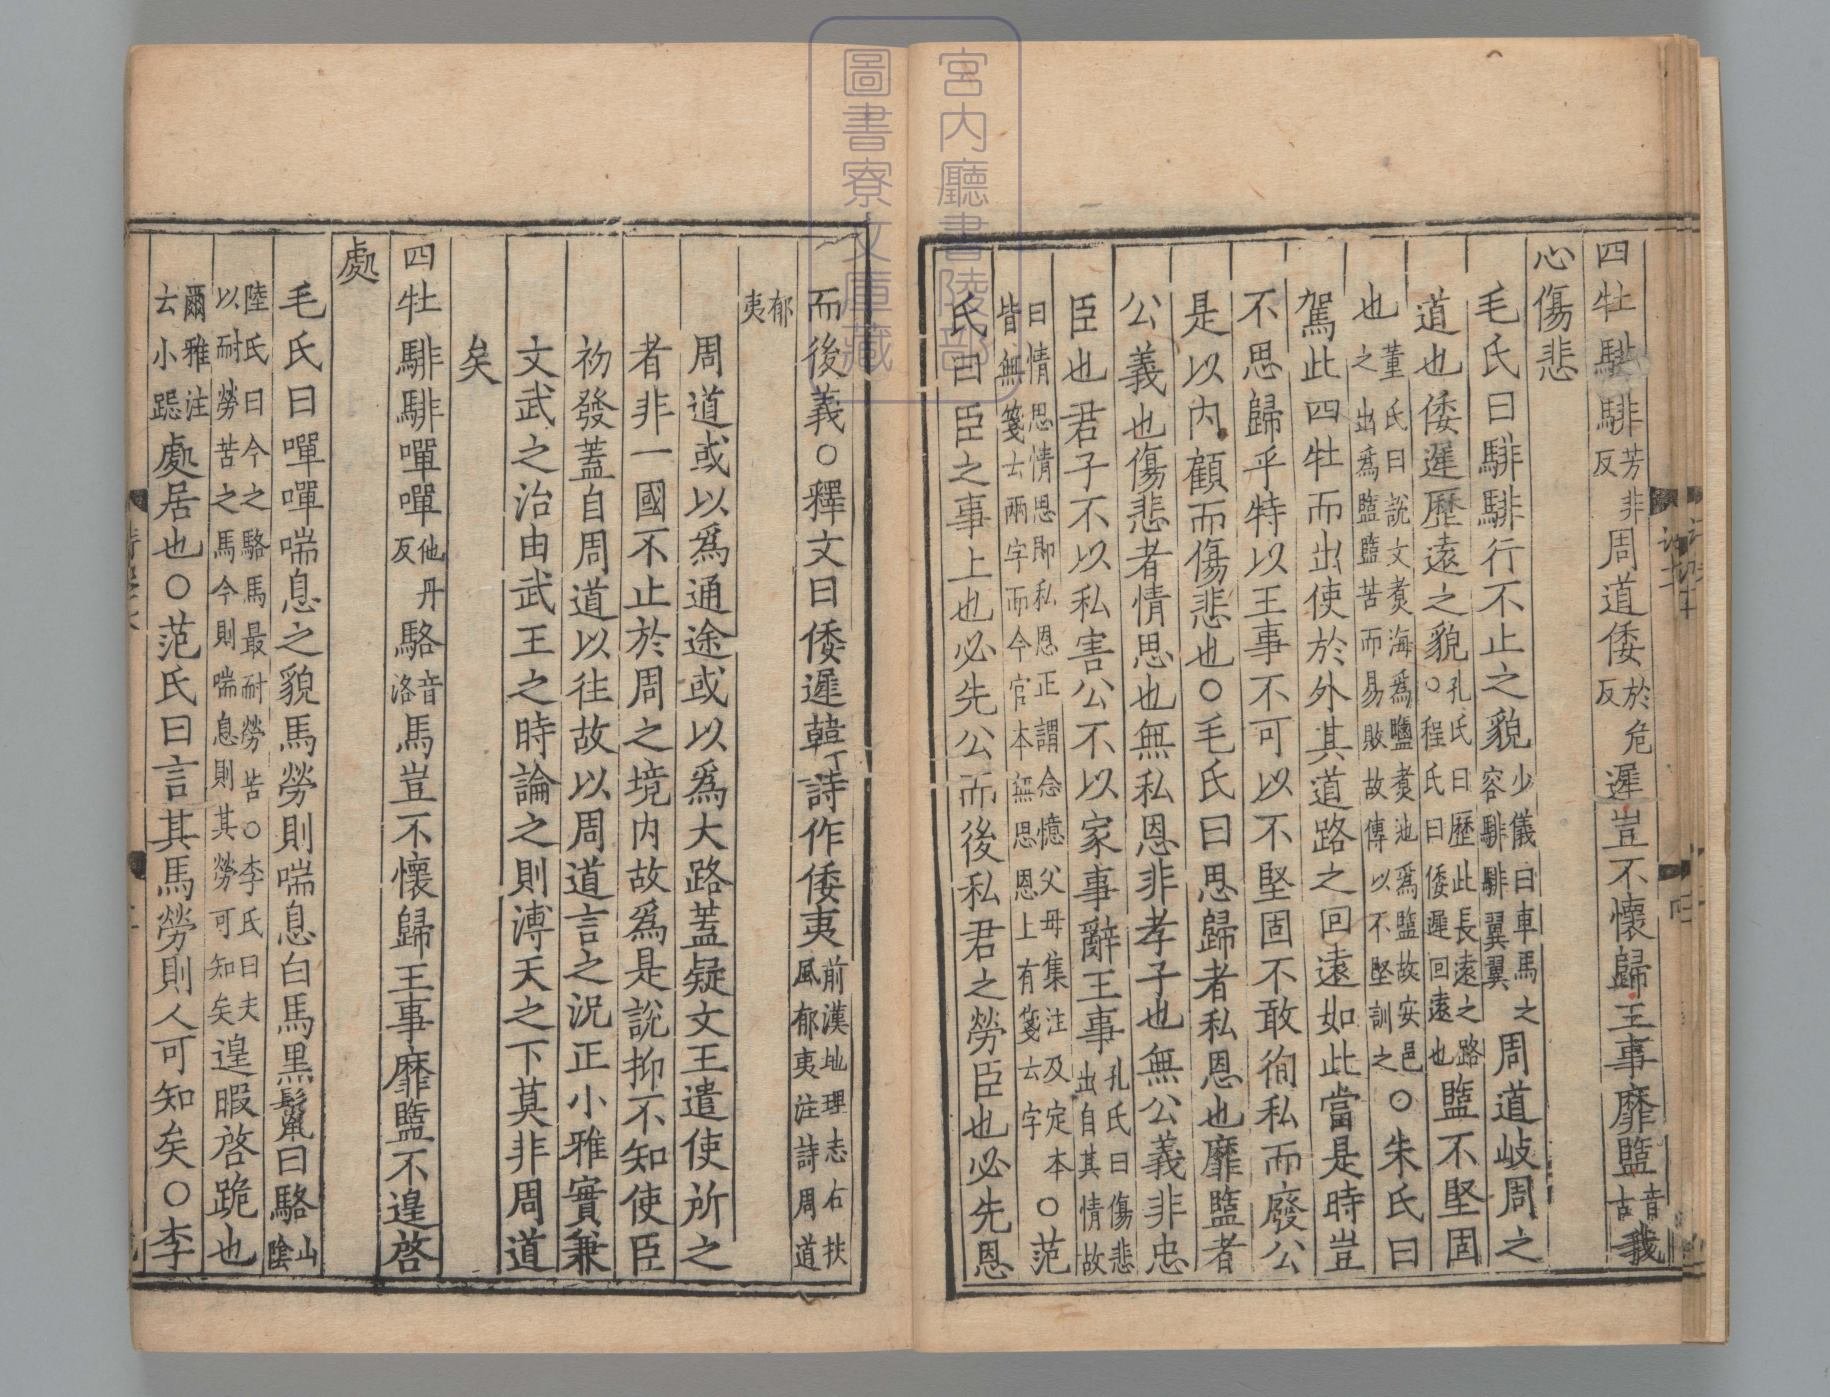 四牡騑騑芳非反周道倭於危反遲豈不懷歸王事靡盬音古我
心傷悲
毛氏曰騑騑行不止之貌少儀曰車馬之容騑騑翼翼周道岐周之
道也倭遲歷遠之貌○孔氏曰歷此長遠之路程氏曰倭遲回遠也盬不堅固
也董氏曰說文煑海爲鹽煑池爲盬故安邑之出爲盬盬苦而易敗故傳以不堅訓之○朱氏曰
駕此四牡而出使於外其道路之回遠如此當是時豈
不思歸乎特以王事不可以不堅固不敢徇私而廢公
是以内顧而傷悲也○毛氏曰思歸者私恩也靡盬者
公義也傷悲者情思也無私恩非孝子也無公義非忠
臣也君子不以私害公不以家事辭王事孔氏曰傷悲出自其情故
曰情思情恩即私恩正謂念憶父母集注及定本皆無箋云兩字而今官本無思恩上有箋云字○范
氏曰臣之事上也必先公而後私君之勞臣也必先恩
而後義○釋文曰倭遲韓詩作倭夷前漢地理志右扶風郁夷注詩周道
郁夷
周道或以爲通途或以爲大路蓋疑文王遣使所之
者非一國不止於周之境内故爲是說抑不知使臣
初發蓋自周道以往故以周道言之況正小雅實兼
文武之治由武王之時論之則溥天之下莫非周道
矣
四牡騑騑嘽嘽他丹反駱音洛馬豈不懷歸王事靡盬不遑啓
處
毛氏曰嘽嘽喘息之貌馬勞則喘息白馬黑鬛曰駱山陰
陸氏曰今之駱馬最耐勞苦○李氏曰夫以耐勞苦之馬今則喘息則其勞可知矣遑暇啓跪也
爾雅注云小跽處居也○范氏曰言其馬勞則人可知矣○李
宮内廳書陵部
圖書寮文庫藏